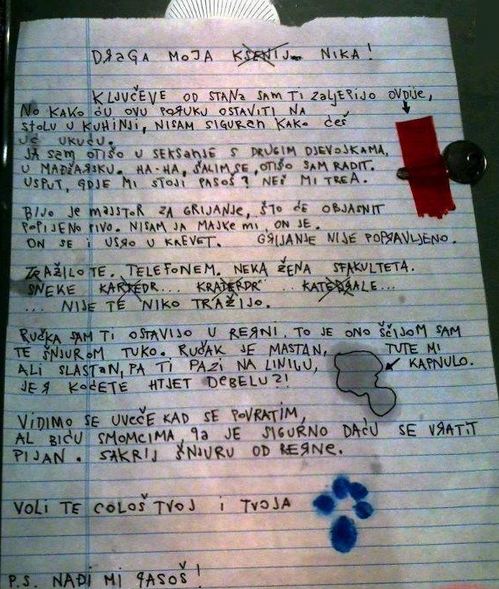 DRAGA MOJA KSENIJ NIKA!
KLJUČEVE OD STANA SAM TI ZALJEPIJO OVDIJE,
NO KAKO ĆU OVU PORUKU OSTAVITI NA
STOLU U KUHINJI, NISAM SIGUREN KAKO ĆEŠ
UĆ UKUĆU.
JA SAM OTIŠO U SEKSANJE S DRUGIM DJEVOJKAMA,
U MAĐARSKU. HA-HA, ŠALIM SE, OTIŠO SAM RADIT.
USPUT, GDJE MI STOJI PASOŠ? NEĆ MI TREA.
BIJO JE MAJSTOR ZA GRIJANJE, ŠTO ĆE OBJASNIT
POPIJENO PIVO. NISAM JA MAJKE MI, ON JE.
ON SE I USRO U KREVET. GRIJANJE NIJE POPRAVLJENO.
TRAŽILO TE. TELEFONEM. NEKA ŽENA SFAKULTETA.
SNEKE KARTEDR... KRATERDR... KATEDRALE...
... NIJE TE NIKO TRAŽIJO.
RUČKA SAM TI OSTAVIJO U RERNI. TO JE ONO ŠČIJOM SAM
TE ŠNJUROM TUKO. RUČAK JE MASTAN, TUTE MI
ALI SLASTAN, PA TI PAZI NA LINIJU, KAPNULO.
JER KOĆETE HTJET DEBELU?!
VIDIMO SE UVEČE KAD SE POVRATIM,
AL BIĆU SMOMCIMA, PA JE SIGURNO DAĆU SE VRATIT
PIJAN. SAKRIJ ŠNJURU OD RERNE.
VOLI TE COLOŠ TVOJ I TVOJA
P.S. NAĐI MI PASOŠ!